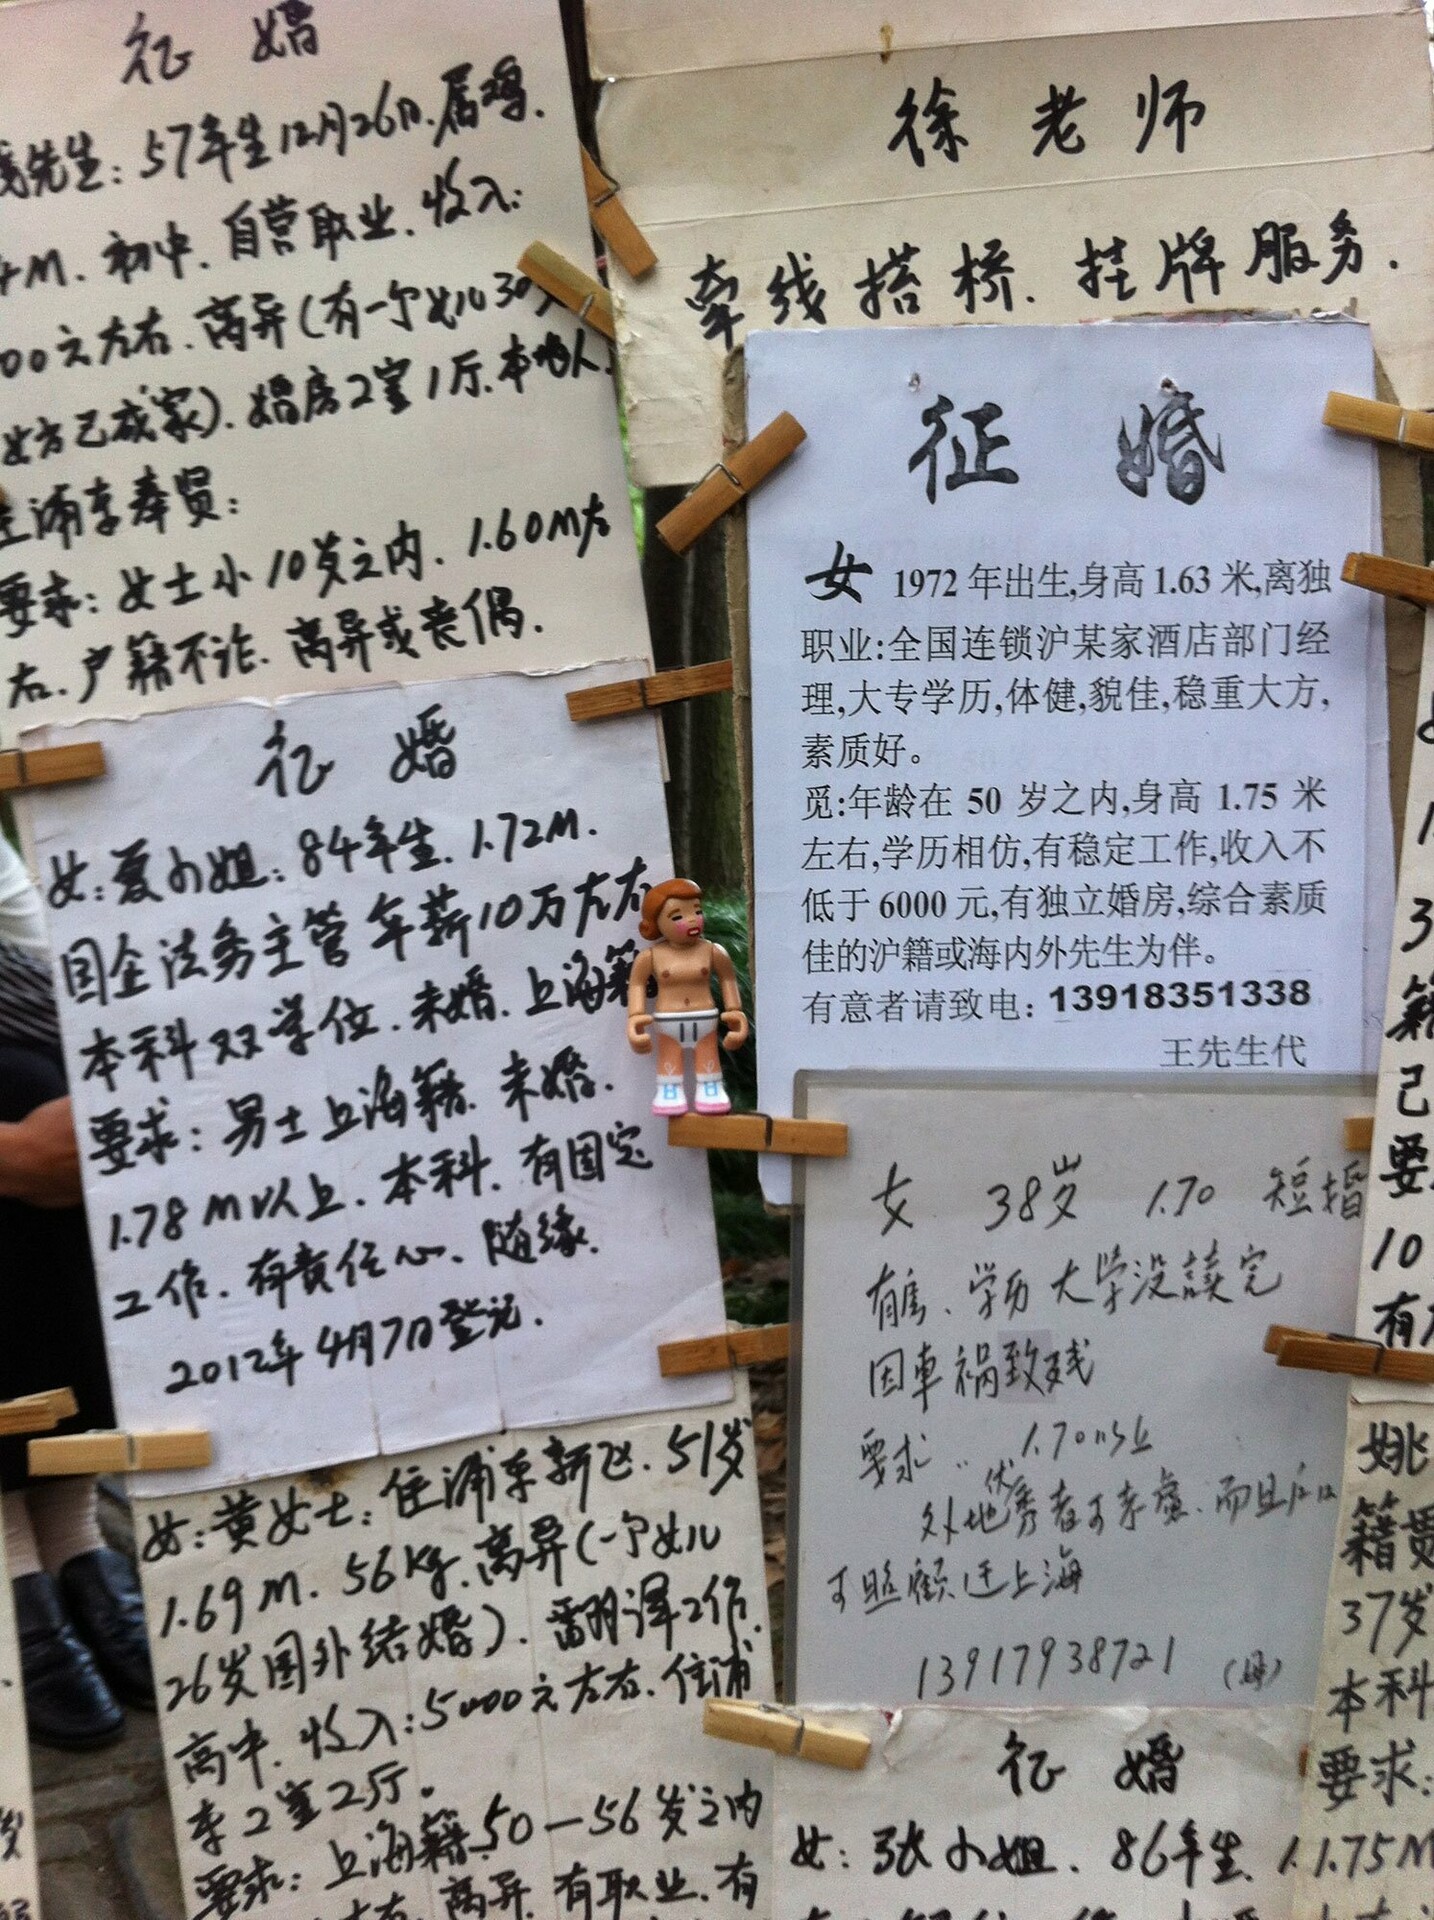 征 婚
先生：57年生12月26日.属鸡.
M. 初中. 自营职业. 收入：
00元左右. 离异(有一个女儿30
女方已成家). 婚房2室1厅.本地人.
浦东奉贤：
要求：女士小10岁之内. 1.60M左
右. 户籍不论. 离异或丧偶.
徐 老 师
牵线搭桥. 挂牌服务.
征 婚
女：夏小姐：84年生. 1.72M.
国企法务主管 年薪10万左右
本科双学位. 未婚. 上海籍
要求：男士上海籍. 未婚.
1.78M以上. 本科. 有固定
工作. 有责任心. 随缘.
2012年4月7日登记.
征 婚
女 1972年出生,身高1.63米,离独
职业:全国连锁沪某家酒店部门经
理,大专学历,体健,貌佳,稳重大方,
素质好。
觅:年龄在 50 岁之内,身高 1.75 米
左右,学历相仿,有稳定工作,收入不
低于 6000 元,有独立婚房,综合素质
佳的沪籍或海内外先生为伴。
有意者请致电：13918351338
王先生代
女 38岁 1.70 短婚
有房、学历 大学没读完
因車祸致残
要求：1.70以上
外地优秀者可考虑.而且
可照顾迁上海
13917938721 (母)
女：黄女士：住浦东新区. 51岁
1.69M. 56kg. 离异(一个女儿
26岁国外结婚). 翻译工作.
高中. 收入：5000元左右. 住浦
东2室2厅。
要求：上海籍.50—56岁之内
离异. 有职业. 有
征 婚
女：张小姐. 86年生. 1.75M
3
籍
己
要
10
有
姚
籍贯
37岁
本科
要求：